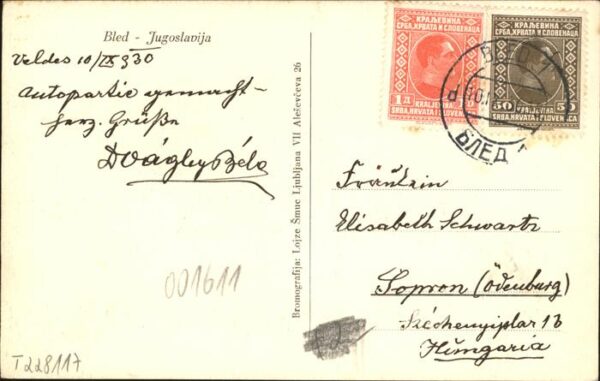 Bled - Jugoslavija
Veldes 10/IX 930
Autopartie gemacht-
herz. Grüße
Bromografija: Lojze Šmuc Ljubljana VII Aleševčeva 26
КРАЉЕВИНА
СРБА, ХРВАТА И СЛОВЕНАЦА
1 Д
KRALJEVINA
SRBA, HRVATA I SLOVENACA
КРАЉЕВИНА
СРБА, ХРВАТА И СЛОВЕНАЦА
50 50
KRALJEVINA
SRBA, HRVATA I SLOVENACA
BLED 1
БЛЕД 1
d
Fräulein
Elisabeth Schwartz
Sopron (Ödenburg)
Széchenyiplar 13
Hungaria
001611
T228117